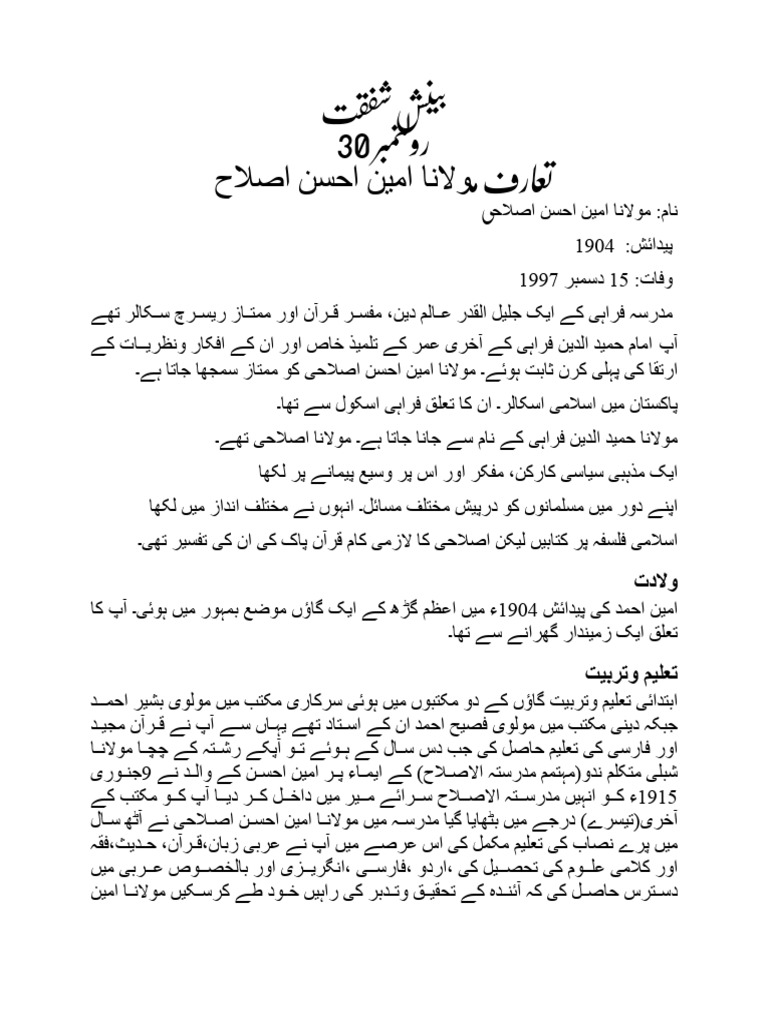 بینش شفقت
رولنمبر30
تعارف مولانا امین احسن اصلاح
نام: مولانا امین احسن اصلاحی
پیدائش: 1904
وفات: 15 دسمبر 1997
مدرسہ فراہی کے ایک جلیل القدر عالم دین، مفسر قرآن اور ممتاز ریسرچ سکالر تھے
آپ امام حمید الدین فراہی کے آخری عمر کے تلمیذ خاص اور ان کے افکار ونظریات کے
ارتقا کی پہلی کرن ثابت ہوئے۔ مولانا امین احسن اصلاحی کو ممتاز سمجھا جاتا ہے۔
پاکستان میں اسلامی اسکالر۔ ان کا تعلق فراہی اسکول سے تھا۔
مولانا حمید الدین فراہی کے نام سے جانا جاتا ہے۔ مولانا اصلاحی تھے۔
ایک مذہبی سیاسی کارکن، مفکر اور اس پر وسیع پیمانے پر لکھا
اپنے دور میں مسلمانوں کو درپیش مختلف مسائل۔ انہوں نے مختلف انداز میں لکھا
اسلامی فلسفہ پر کتابیں لیکن اصلاحی کا لازمی کام قرآن پاک کی ان کی تفسیر تھی۔
ولادت
امین احمد کی پیدائش 1904ء میں اعظم گڑھ کے ایک گاؤں موضع بمہور میں ہوئی۔ آپ کا
تعلق ایک زمیندار گھرانے سے تھا۔
تعلیم وتربیت
ابتدائی تعلیم وتربیت گاؤں کے دو مکتبوں میں ہوئی سرکاری مکتب میں مولوی بشیر احمد
جبکہ دینی مکتب میں مولوی فصیح احمد ان کے استاد تھے یہاں سے آپ نے قرآن مجید
اور فارسی کی تعلیم حاصل کی جب دس سال کے ہوئے تو آپکے رشتہ کے چچا مولانا
شبلی متکلم ندو(مہتمم مدرستہ الاصلاح) کے ایماء پر امین احسن کے والد نے 9جنوری
1915ء کو انہیں مدرستہ الاصلاح سرائے میر میں داخل کر دیا آپ کو مکتب کے
آخری(تیسرے) درجے میں بٹھایا گیا مدرسہ میں مولانا امین احسن اصلاحی نے آٹھ سال
میں پرے نصاب کی تعلیم مکمل کی اس عرصے میں آپ نے عربی زبان،قرآن، حدیث،فقہ
اور کلامی علوم کی تحصیل کی ،اردو ،فارسی ،انگریزی اور بالخصوص عربی میں
دسترس حاصل کی کہ آئندہ کے تحقیق وتدبر کی راہیں خود طے کرسکیں مولانا امین